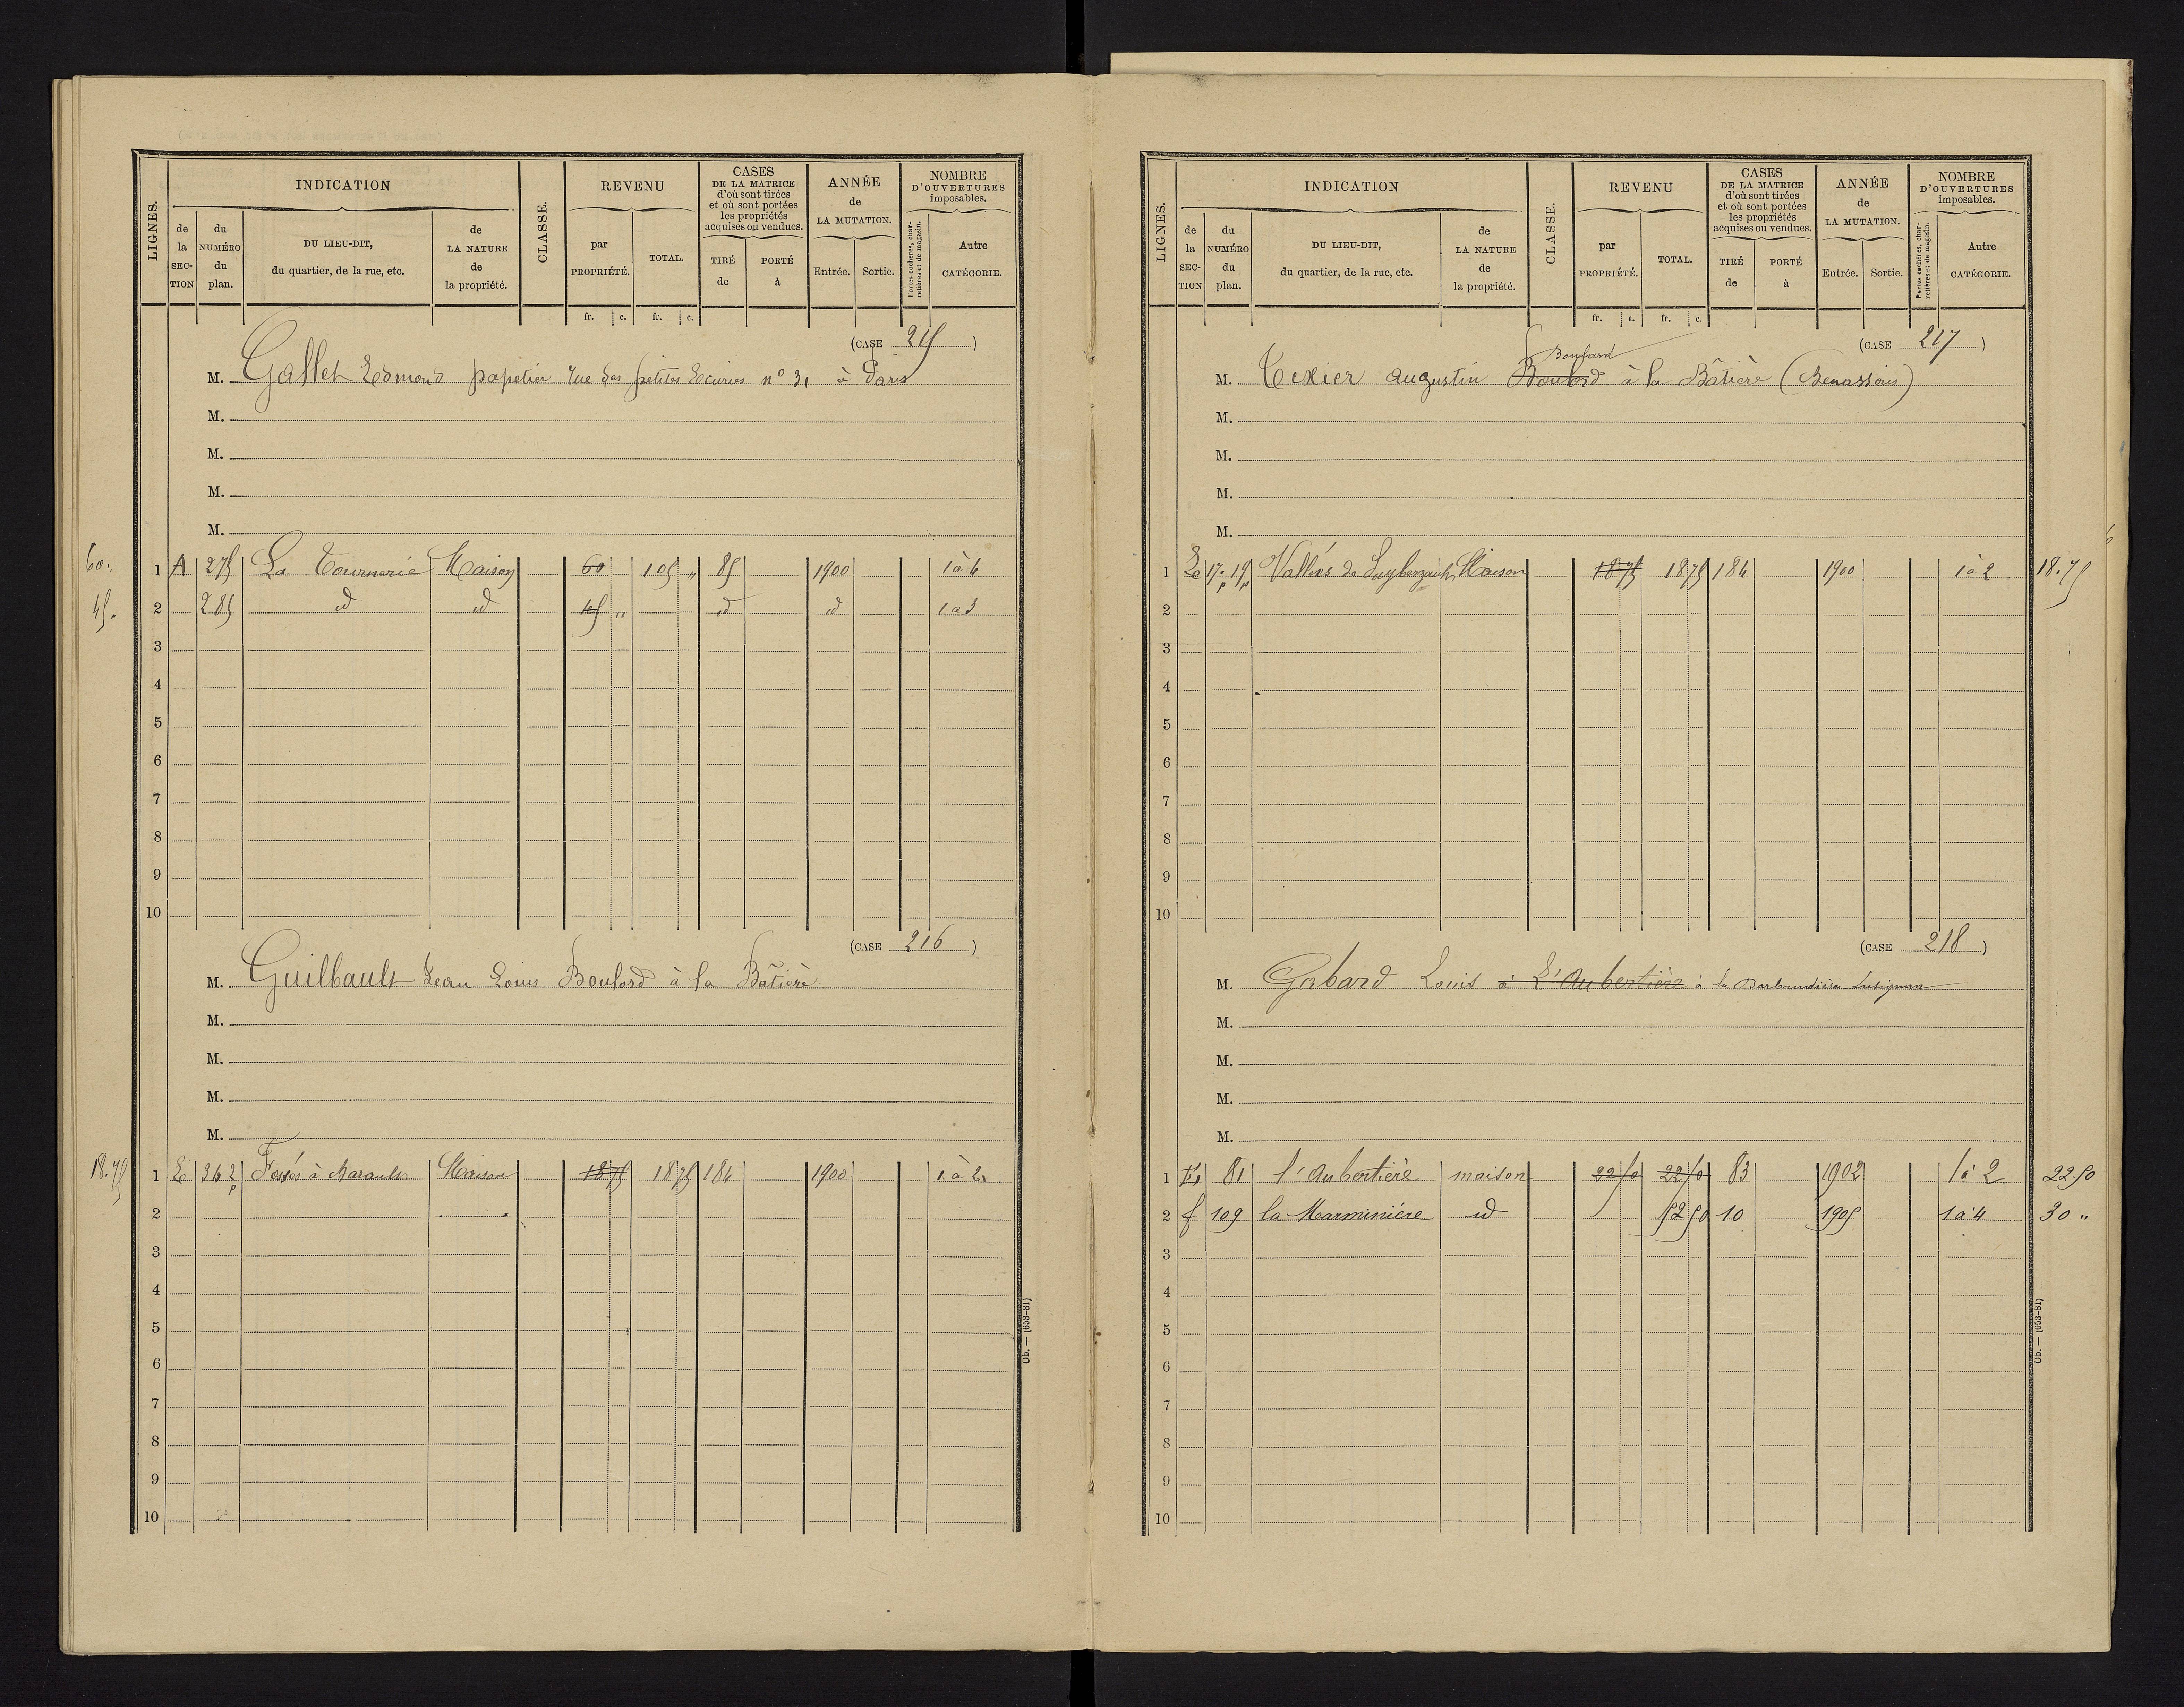 LIGNES. INDICATION CLASSE. REVENU CASES DE LA MATRICE d'où sont tirées et où sont portées les propriétés acquises ou vendues. ANNÉE de LA MUTATION. NOMBRE D'OUVERTURES imposables.
de la SEC-TION du NUMÉRO du plan. DU LIEU-DIT, du quartier, de la rue, etc. de LA NATURE de la propriété. par PROPRIÉTÉ. TOTAL. TIRÉ de PORTÉ à Entrée. Sortie. Portes cochères, charretières et de magasin. Autre CATÉGORIE.
fr. c. fr. c.
(CASE 215)
M. Gallet Edmond papetier rue des petites Ecuries n° 31 à Paris
M.
M.
M.
M.
60. 1 A 275 La Tournerie Maison 60 105 " 85 1900 1 à 4
45. 2 285 id id 45 " id id 1 a 3
3
4
5
6
7
8
9
10
(CASE 216)
M. Guilbault Jean Louis Boulord à la Bâtière
M.
M.
M.
M.
18.75 1 E 342 p Fossés à Barault Maison 18 75 18 75 184 1900 1 à 2
2
3
4
5
6
7
8
9
10
Ob. — (653-81)
LIGNES. INDICATION CLASSE. REVENU CASES DE LA MATRICE d'où sont tirées et où sont portées les propriétés acquises ou vendues. ANNÉE de LA MUTATION. NOMBRE D'OUVERTURES imposables.
de la SEC-TION du NUMÉRO du plan. DU LIEU-DIT, du quartier, de la rue, etc. de LA NATURE de la propriété. par PROPRIÉTÉ. TOTAL. TIRÉ de PORTÉ à Entrée. Sortie. Portes cochères, charretières et de magasin. Autre CATÉGORIE.
fr. c. fr. c.
(CASE 217)
Boufard
M. Texier Augustin Boulord à la Bâtière (Benassais)
M.
M.
M.
M.
1 E 17 p 19 p Vallées de Maison 18 75 18 75 184 1900 1 à 2 18.75
2
3
4
5
6
7
8
9
10
(CASE 218)
M. Gabard Louis à L'Aubertière à la Barbaudière Lusignan
M.
M.
M.
M.
1 81 l'Aubertière maison 22 50 22 50 83 1902 1 à 2 22.50
2 f 109 la Marminière id 52 50 10 1905 1 à 4 30 "
3
4
5
6
7
8
9
10
Ob. — (653-81)